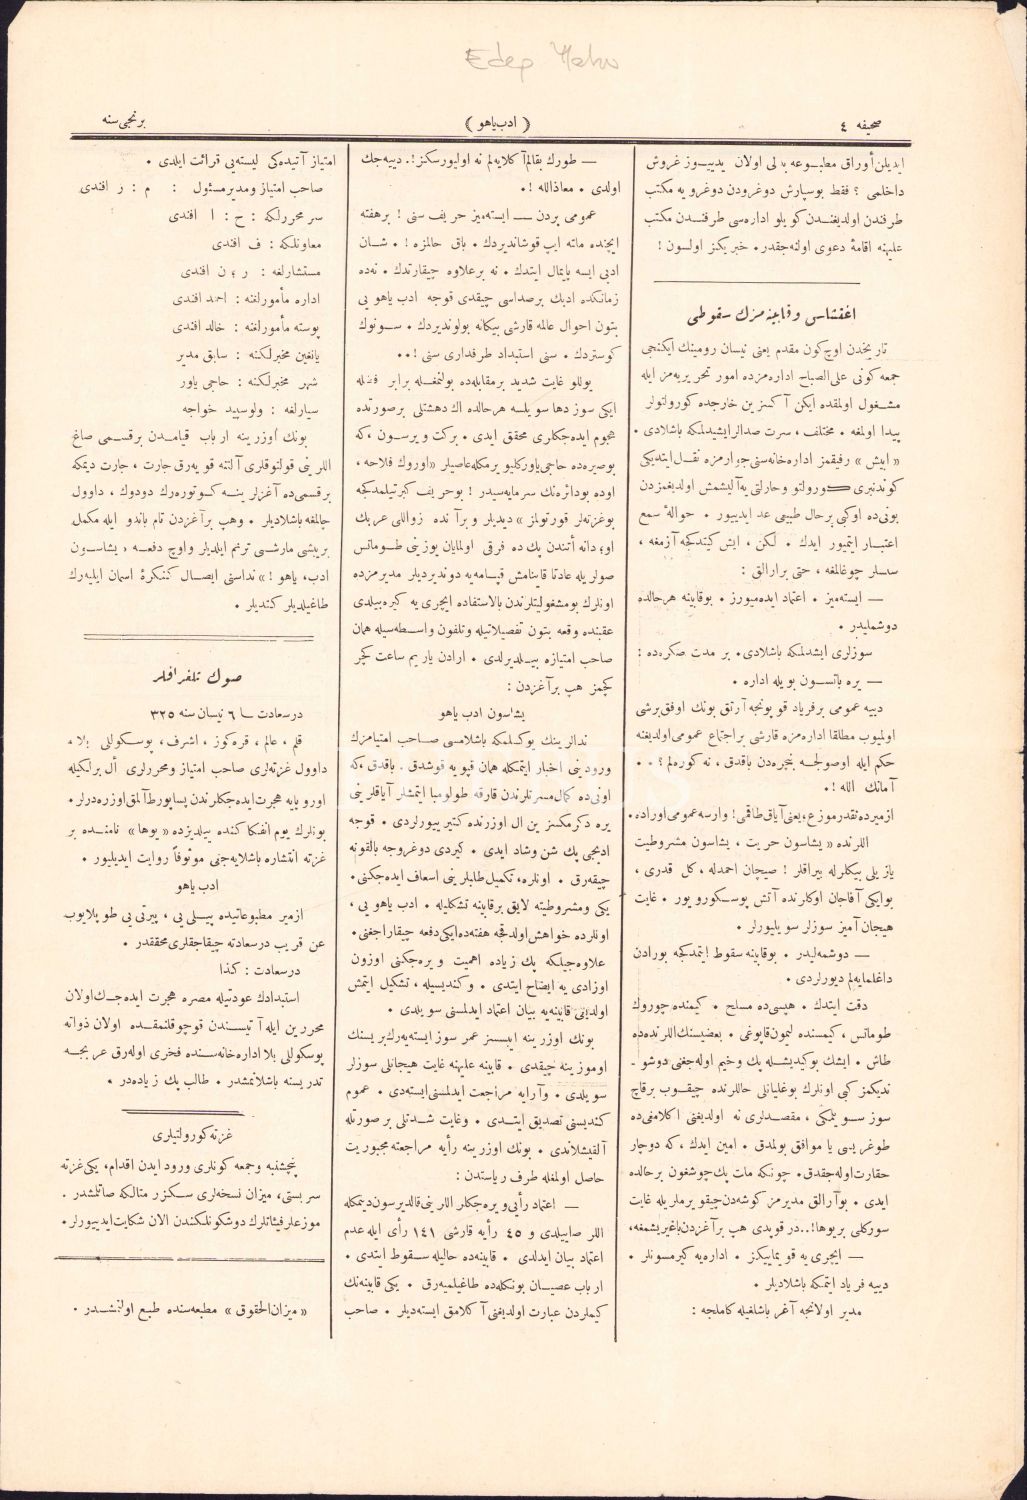 Edep Yahu
صحیفه ٤
( ادب یاهو )
برنجی سنه
ایدیلن أوراق مطبوعه بدلی اولان یدییوز غروش
داخلمی ؟ فقط بوسپارش دوغرودن دوغرویه مکتب
طرفندن اولدیغندن کویلو اداره‌سی طرفندن مکتب
علیهنه اقامهٔ دعوی اولنه‌جقدر. خبریکز اولسون !
اغتشاش وقابینه مزك سقوطی
تاریخدن اوچ کون مقدم یعنی نیسان رومینك ایکنجی
جمعه کونی علی الصباح اداره‌مزده امور تحریریه‌مز ایله
مشغول اولمقده ایکن آکسزین خارجده کورولتولر
پیدا اولمغه ، مختلف ، سرت صدالر ایشیدلمکه باشلادی .
« ایش » رفیقمز اداره‌خانه‌سنی جوارمزه نقل ایتدیکی
کوندنبری کورولتو وحارلتی یه آلیشمش اولدیغمزدن
بونی ده اوکی برحال طبیعی عد ایدییور . حوالهٔ سمع
اعتبار ایتمیور ایدك . لکن ، ایش کیتدکجه آزمغه ،
سسلر چوغالمغه ، حتی برارالق :
— ایسته‌میز . اعتماد ایده‌میورز . بوقابینه هرحالده
دوشملیدر .
سوزلری ایشدلمکه باشلادی. بر مدت صکره‌ده :
— یره باتسون بویله اداره .
دییه عمومی برفریاد قوپونجه آرتق بونك اوفق برشی
اولمیوب مطلقا اداره‌مزه قارشی براجتماع عمومی اولدیغنه
حکم ایله اوصولجه پنجره‌دن باقدق ، نه کوره‌لم ؟ . .
آمانك الله !.
ازمیرده نقدر موزع ، یعنی آیاق طاقمی ! وارسه عمومی اوراده .
اللرنده « یشاسون حریت ، یشاسون مشروطیت
یازیلی بیکلرله بیراقلر ! صیچان احمدله ، کل قدری ،
بوایکی آفاجان اوکلرنده آتش پوسکورویور . غایت
هیجان آمیز سوزلر سویلیورلر .
— دوشمه‌لیدر . بوقابینه سقوط ایتمدکجه بورادن
داغلمایه‌لم دیورلردی .
دقت ایتدك . هپسی‌ده مسلح . کیمنده چوروك
طوماتس ، کیمسنده لیمون قابوغی . بعضیسنك اللرنده‌ده
طاش . ایشك بوکیدیشله پك وخیم اوله‌جغنی دوشو -
ندیکمز کبی اونلرك بوغلیانلی حاللرنده چیقوب برقاچ
سوز سویلمکی ، مقصدلری نه اولدیغنی اکلامغی‌ده
طوغریسی یا موافق بولمدق . امین ایدك ، که دوچار
حقارت اوله‌جقدق . چونکه مات پك چوشغون برحالده
ایدی . بوآرالق مدیرمز کوشه‌دن چیقویرملریله غایت
سورکلی بریوها !.. در قوپدی هپ برآغزدن باغریشمغه ،
— ایچری یه قویماییکز . اداره‌یه کیرمسونلر .
دییه فریاد ایتمکه باشلادیلر .
مدیر اولانجه آغر باشلغیله کاملجه :
— طورك بقالم آکلایه‌لم نه اولیورسکز !. دییه‌جك
اولدی . معاذالله !.
عمومی بردن — ایسته‌میز حریف سنی ! برهفته
ایچنده ماته ایپ قوشاندیردك . باق حالمزه ! . شان
ادبی ایسه پایمال ایتدك . نه برعلاوه چیقارتدك . نه‌ده
زمانکده ادبك برصداسی چیقدی قوجه ادب یاهو یی
بتون احوال عالمه قارشی بیکانه بولوندیردك . سونوك
کوستردك . سنی استبداد طرفداری سنی !..
یوللو غایت شدید برمقابله‌ده بولنمغله برابر فضله
ایکی سوز دها سویلسه هرحالده اك دهشتلی برصورتده
هجوم ایده‌جکلری محقق ایدی . برکت ویرسون ، که
بوصیره‌ده حاجی یاور کلیویرمکله عاصیلر « اوروك فلاحه ،
اوده بودائره‌نك سرمایه‌سیدر ! بوحریف کبرتیلمدکجه
بوغزته‌لر قورتولمز » دیدیلر و برآنده زواللی عربك
صولریله عادتا قاینامش قیامه‌یه دوندیردیلر مدیرمزده
اونلرك بومشغولیتلرندن بالاستفاده ایچری یه کیره‌بیلدی
عقبنده وقعه بتون تفصیلاتیله وتلفون واسطه‌سیله همان
صاحب امتیازه بیلدیرلدی . ارادن یاریم ساعت کچر
کچمز هپ برآغزدن :
یشاسون ادب یاهو
ندالرینك یوکسلمکه باشلامسی صاحب امتیازمزك
ورودینی اخبار ایتمکله همان قپویه قوشدق . باقدق ، که
یره دکرمکسزین ال اوزرنده کتیرییورلردی . قوجه
ادبجی پك شن وشاد ایدی . کیردی دوغروجه بالقونه
چیقه‌رق . اونلره ، تکمیل طلبلرینی اسعاف ایده‌جکنی .
یکی ومشروطیته لایق برقابینه تشکلیله . ادب یاهو یی ،
اونلرده خواهش اولدقجه هفته‌ده ایکی دفعه چیقاراجغنی .
علاوه‌جیلکه پك زیاده اهمیت ویره‌جکنی اوزون
اوزادی یه ایضاح ایتدی . وکندیسیله ، تشکیل ایتمش
اولدیغی قابینه‌یه بیان اعتماد ایدلمسنی سویلدی .
بونك اوزرینه ایپسز عمر سوز ایسته‌یه‌رك بریسنك
اوموزینه چیقدی . قابینه علیهنه غایت هیجانلی سوزلر
سویلدی . وآرایه مراجعت ایدلمسنی ایسته‌دی . عموم
کندیسنی تصدیق ایتدی . وغایت شدتلی برصورتله
آلقیشلاندی . بونك اوزرینه رأیه مراجعته مجبوریت
حاصل اولمغله طرف ریاستدن :
— اعتماد رأیی ویره‌جکلر اللرینی قالدیرسون دینمکله
اللر صاییلدی و ٤٥ رأیه قارشی ١٤١ رأی ایله عدم
اعتماد بیان ایدلدی . قابینه‌ده حالیله سقوط ایتدی .
ارباب عصیان بونکله‌ده طاغیلمیه‌رق . یکی قابینه‌نك
کیملردن عبارت اولدیغنی آکلامق ایسته‌دیلر . صاحب
امتیاز آتیده‌کی لیسته‌یی قرائت ایلدی .
صاحب امتیاز ومدیرمسئول : م : ر افندی
سر محررلکه : ح : ا افندی
معاونلکه : ف افندی
مستشارلغه : ر ، ن افندی
اداره مأمورلغنه : احمد افندی
پوسته مأمورلغنه : خالد افندی
یانغین مخبرلکنه : سابق مدیر
شهر مخبرلکنه : حاجی یاور
سیارلغه : ولوسپید خواجه
بونك اوزرینه ارباب قیامدن برقسمی صاغ
اللرینی قولتوقلری آلتنه قویه‌رق جارت ، جارت دیمکه
برقسمی‌ده آغزلرینه کوتوره‌رك دودوك ، داوول
چالمغه باشلادیلر . وهپ برآغزدن تام باندو ایله مکمل
بریشی مارشی ترنم ایلدیلر واوچ دفعه « یشاسون
ادب ، یاهو ! » نداسنی ایصال کنکرهٔ اسمان ایلیه‌رك
طاغیلدیلر کتدیلر .
صوك تلغرافلر
درسعادت — ٦ نیسان سنه ٣٢٥
قلم ، عالم ، قره‌کوز ، اشرف ، پوسکوللی بلا ،
داوول غزته‌لری صاحب امتیاز ومحررلری أل برلکیله
اوروپایه هجرت ایده‌جکلرندن پساپورط آلمق اوزره‌درلر .
بونلرك یوم انفکاکنده ییلدیزده « یوها » نامنده بر
غزته انتشاره باشلایه‌جغی موثوقاً روایت ایدیلیور .
ادب یاهو
ازمیر مطبوعاتیده پیلی‌یی ، پیرتی‌یی طوپلایوب
عن قریب درسعادته چیقاجقلری محققدر .
درسعادت : کذا
استبدادك عودتیله مصره هجرت ایده‌جك اولان
محررین ایله آتیسندن قوچوقلنمقده اولان ذواته
پوسکوللی بلا اداره‌خانه‌سنده فخری اوله‌رق عربجه
تدریسنه باشلانمشدر . طالب پك زیاده‌در .
غزته کورولتیلری
پنجشنبه وجمعه کونلری ورود ایدن اقدام ، یکی غزته
سربستی ، میزان نسخه‌لری سکزر متالکه صاتلمشدر .
موزعلر فیئاتلرك دوشکونلکندن الان شکایت ایدییورلر .
« میزان الحقوق » مطبعه‌سنده طبع اولنمشدر .